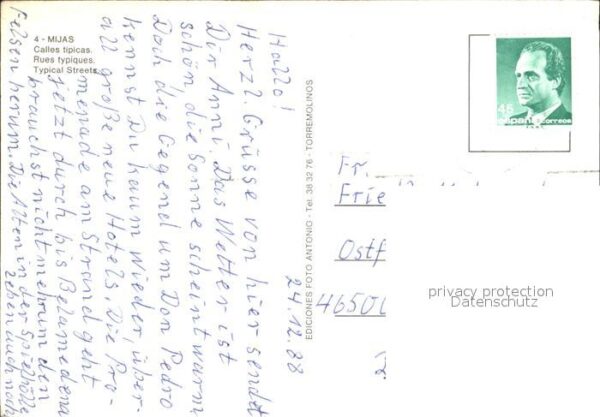 4 - MIJAS
Calles típicas.
Rues typiques.
Typical Streets.
24.12.88
Hallo!
Herzl. Grüsse von hier sendet
Dir Anni. Das Wetter ist
schön die Sonne scheint warm
Doch die Gegend um Don Pedro
kennst Du kaum wieder, über-
all große neue Hotels. Die Pro-
menade am Strand geht
jetzt durch bis Belamedena
brauchst nicht mehr um den
Felsen herum. Die Alten in der Spielhölle
leben auch noch
EDICIONES FOTO ANTONIO - Tel. 38 32 76 - TORREMOLINOS
45
España correos
Fr.
Frie
Ostf
4650
privacy protection
Datenschutz